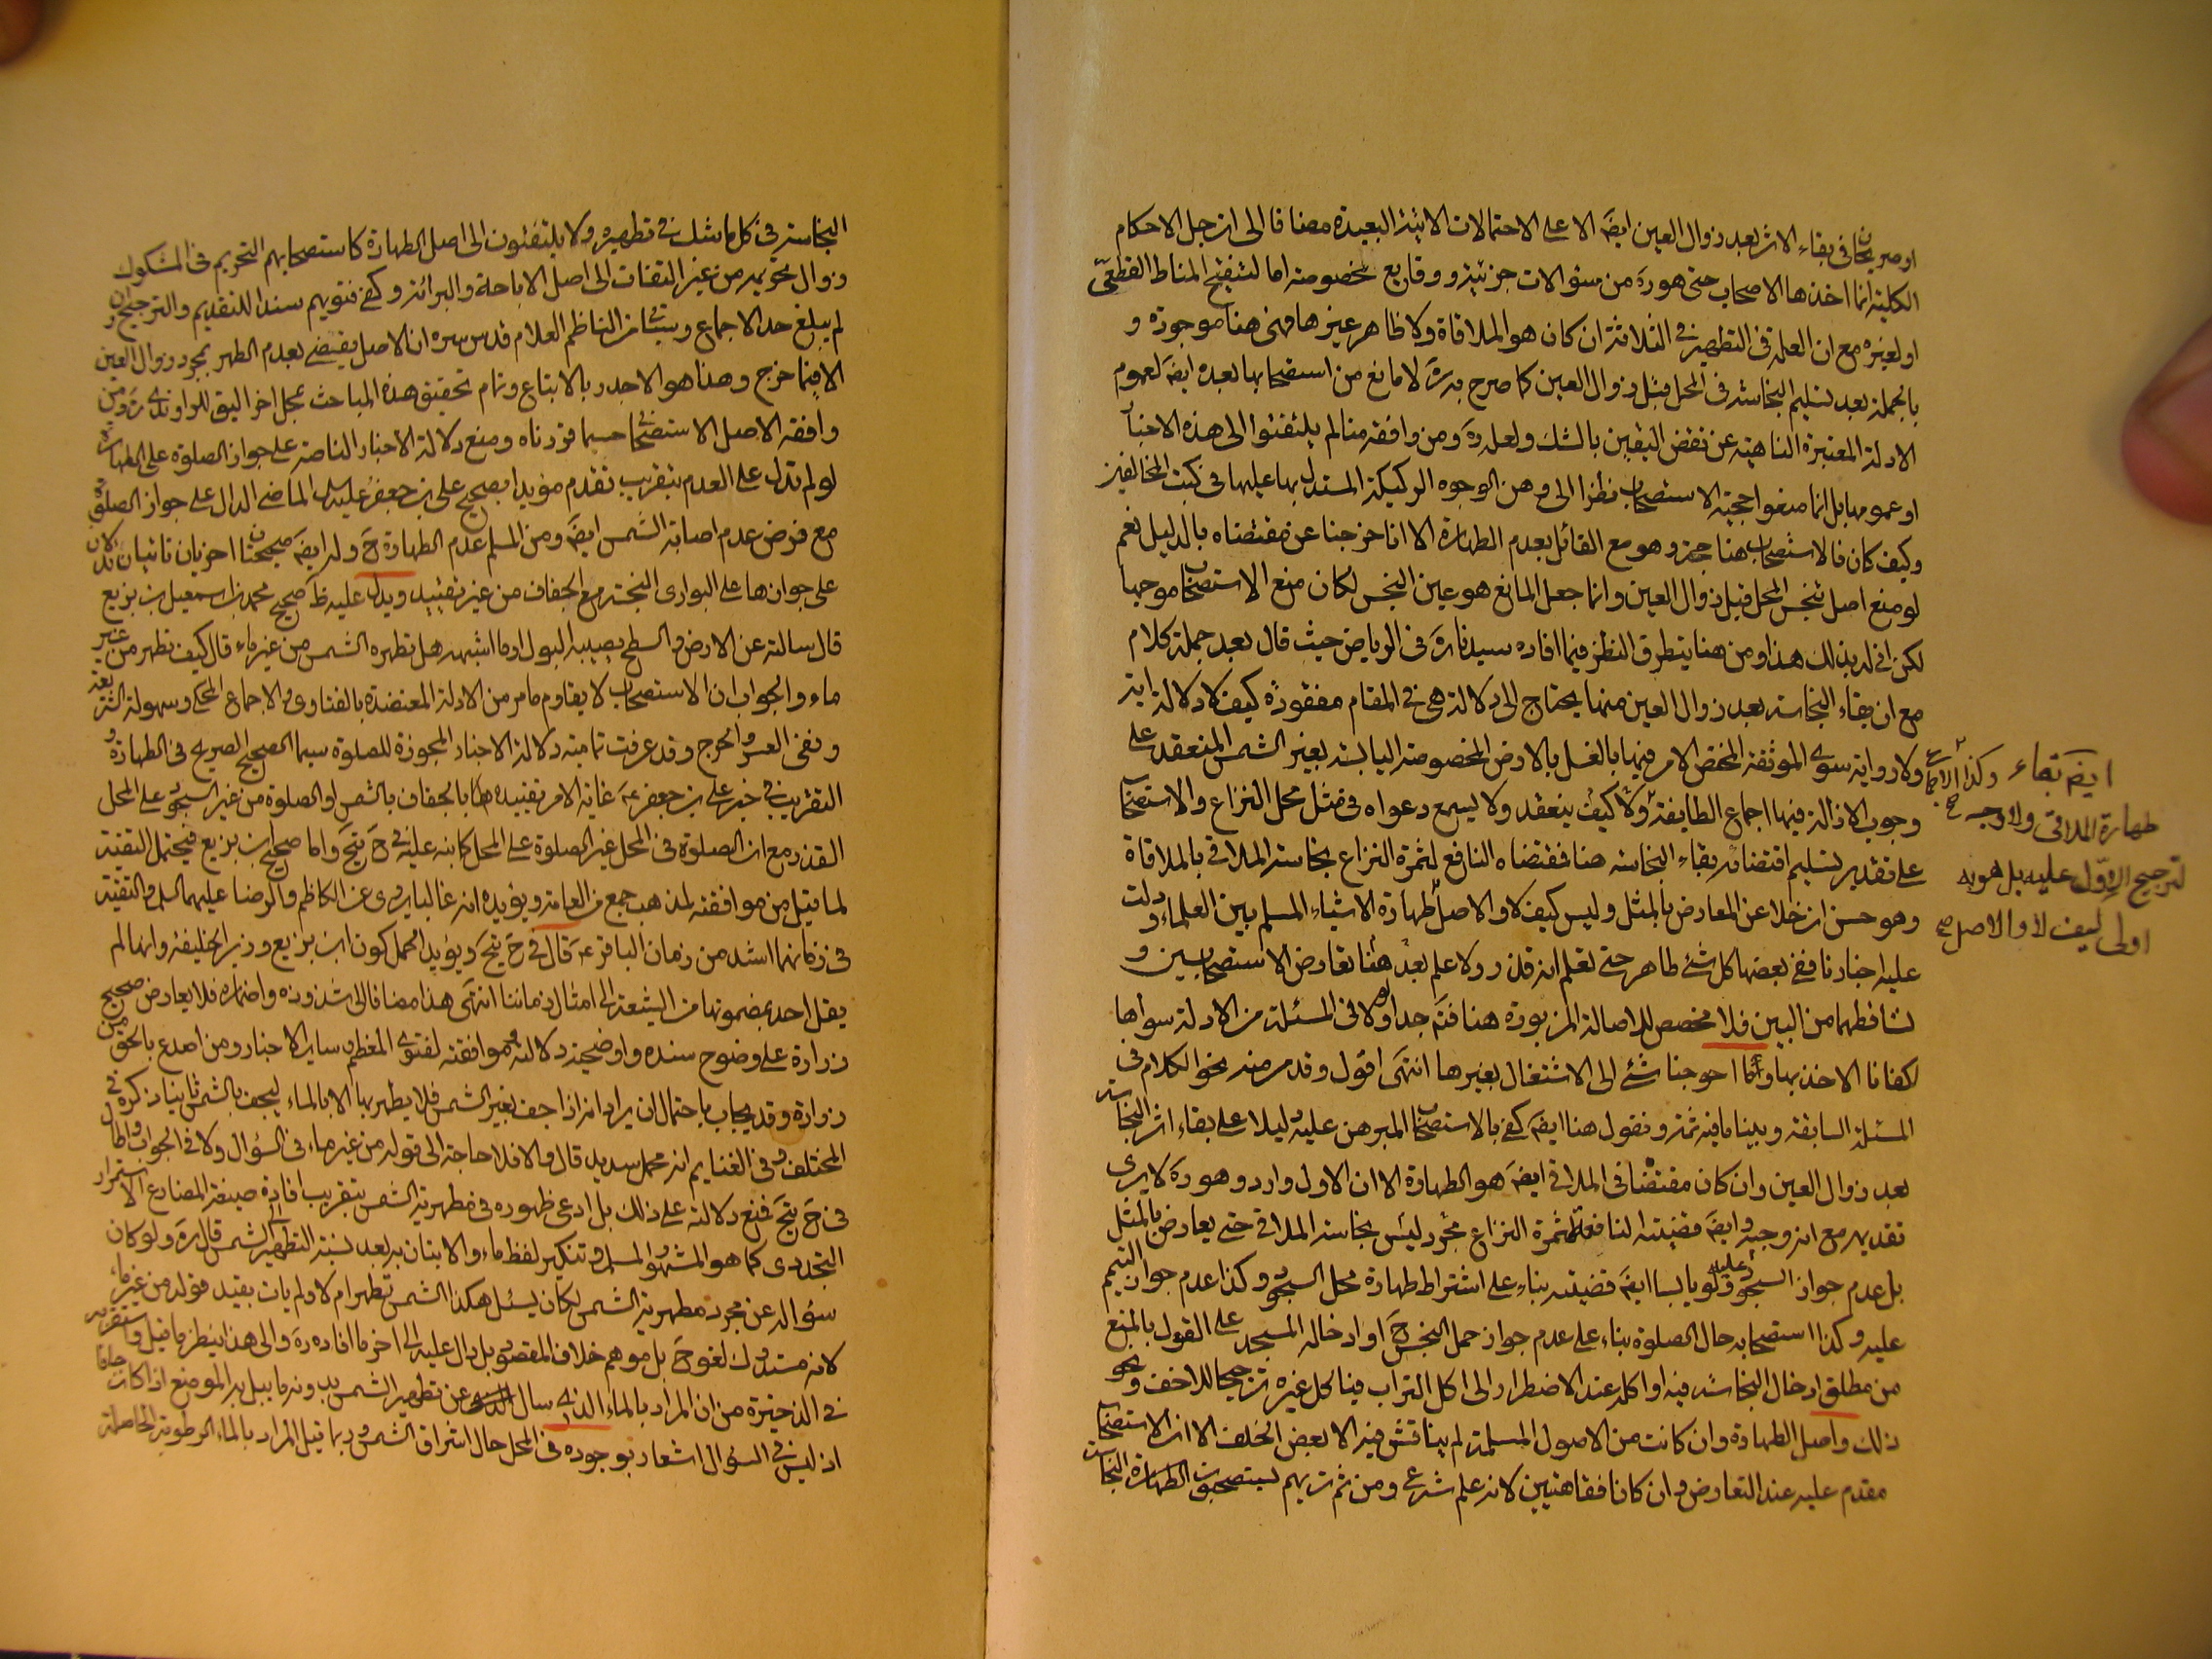 او صريحا في بقاء الاثر بعد زوال العين ايضَ الا على الاحتمالات الاتية البعيدة مضافا الى ان جل الاحكام
الكلية انما اخذها الاصحاب حتى هو ره من سؤالات جزئية ووقايع مخصوصة اما لتنقيح المناط القطعي
او لغيره مع ان العلة في التطهير في الثلاثة ان كان هو الملاقاة ولا ظاهر غيرها فهي هنا موجودة و
بالجملة بعد تسليم النجاسة في المحل قبل زوال العين كما صرح به ره لا مانع من استصحابها بعده ايضَ لعموم
الادلة المعتبرة الناهية عن نقض اليقين بالشك ولعله ره ومن وافقه منا لم يلتفتوا الى هذه الاخبار
او عمومها بل انما منعوا حجية الاستصحاب نظرا الى وهن الوجوه الركيكة المستدل بها عليها في كتب المخالفين
وكيف كان فالاستصحاب هنا حجة وهو مع القائل بعدم الطهارة الا انا خرجنا عن مقتضاه بالدليل نعم
لو منع اصل تنجس المحل قبل زوال العين وانما جعل المانع هو عين النجس لكان منع الاستصحاب موجها
لكن انى له بذلك هذا ومن هنا يتطرق النظر فيما افاده سيدنا ره في الرياض حيث قال بعد جملة كلام
مع ان بقاء النجاسة بعد زوال العين منها يحتاج الى دلالة هي في المقام مفقودة كيف لا ولا دلالة اية
ولا رواية سوى الموثقة المختص الامر فيها بالغسل بالارض المخصوصة اليابسة بغير الشمس المنعقد على
وجوب الازالة فيها اجماع الطايفة ولا كيف ينعقد ولا يسمع دعواه في مثل محل النزاع والاستصحاب
على تقدير تسليم اقتضائه بقاء النجاسة هنا فمقتضاه النافع لثمرة النزاع نجاسة الملاقي بالملاقاة
وهو حسن ان خلا عن المعارض بالمثل وليس كيف لا والاصل طهارة الاشياء المسلم بين العلماء ودلت
عليه اخبارنا ففي بعضها كل شئ طاهر حتى تعلم انه قذر ولا علم بعد هنا تعارض الاستصحابين و
تساقطهما من البين فلا مخصص للاصالة المزبورة هنا فتم جدا ولولا في المسئلة من الادلة سواها
لكفانا الاخذ بها وما احوجنا شئ الى الاشتغال بغيرها انتهى اقول وقد مر منه نحو الكلام في
المسئلة السابقة وبينا ما فيه ثمة ونقول هنا ايضَ كفى بالاستصحاب المبرهن عليه دليلا على بقاء اثر النجاسة
بعد زوال العين وان كان مقتضا في الملاقي ايضَ هو الطهارة الا ان الاول وارد وهو ره لا يرى
تقديمه مع انه وجيه وايضَ قضيته النافعة لثمرة النزاع مجرد ليس نجاسة الملاقي حتى يعارض بالمثل
بل عدم جواز السجود عليه ولو يابسا ايضَ قضيته بناء على اشتراط طهارة محل السجود وكذا عدم جواز التيمم
عليه وكذا استصحابه حال الصلوة بناء على عدم جواز حمل النجس حَ او ادخاله المسجد على القول بالمنع
من مطلق ادخال النجاسة فيه او اكله عند الاضطرار الى اكل التراب فياكل غيره ترجيحا للاخف ونحو
ذلك واصل الطهارة وان كانت من الاصول المسلمة لم يناقش فيه الا بعض الخلف الا ان الاستصحاب
مقدم عليه عند التعارض وان كانا فقاهتيين لانه علم شرعي ومن ثم تريهم يستصحبون الطهارة النجاسة
ايضَ بقاء
طهارة الملاقي ولا وجه
لترجيح الاول عليه بل هو به
اولى كيف لا والاصل صح
النجاسة في كل ما شك في تطهيره ولا يلتفتون الى اصل الطهارة كاستصحابهم التحريم في المشكوك
وزوال تحريمه من غير التفات الى اصل الاباحة والبرائة وكفى فتويهم سندا للتقديم والترجيح وان
لم يبلغ حد الاجماع وستاتي من الناظم العلام قدس سره ان الاصل يقتضي بعدم الطهر بمجرد زوال العين
الا فيما خرج وهنا هو الاجدر بالاتباع وتمام تحقيق هذه المباحث بمحل اخر اليق للراوندي ره ومن
وافقه الاصل الاستصحاب حسبما قررناه ومنع دلالة الاخبار الناصة على جواز الصلوة على الطهارة
لو لم تدل على العدم بتقريب تقدم مؤيدا بصحيح علي بن جعفر عليه السلم الماضي الدال على جواز الصلوة
مع فرض عدم اصابة الشمس ايضَ ومن المسلم عدم الطهارة حَ وله ايضَ صحيحتان اخريان تاتيان تدلان
على جوازها على البواري النجسة مع الجفاف من غير تقييد ويدل عليه ظَ صحيح محمد بن اسمعيل بن بزيع
قال سالته عن الارض والسطح يصيبه البول او ما اشبهه هل تطهره الشمس من غير ماء قال كيف تطهر من غير
ماء والجواب ان الاستصحاب لا يقاوم ما مر من الادلة المعتضدة بالفتاوى والاجماع المحكي وسهولة الشريعة
ونفي العسر والحرج وقد عرفت تمامية دلالة الاخبار المجوزة للصلوة سيما الصحيح الصريح في الطهارة و
التقريب في خبر علي بن جعفر عَ غاية الامر تقييده بالجفاف بالشمس او الصلوة من غير السجود على المحل
القذر مع ان الصلوة في المحل غير الصلوة على المحل كما نبه عليه في حَ يتجَ واما صحيح ابن بزيع فيحتمل التقية
لما قيل من موافقته لمذهب جمع من العامة ويؤيده انه غالبا يروي عن الكاظم والرضا عليهما السلم والتقية
في زمانهما اشد من زمان الباقر عَ قال في حَ يتجَ ويؤيد الحمل كون ابن بزيع وزير الخليفة وانها لم
يقل احد بمضمونها من الشيعة الى امثال زماننا انتهى هذا مضافا الى شذوذه واضماره فلا يعارض صحيح
زرارة على وضوح سنده واوضحية دلالته وموافقته لفتوى المعظم وساير الاخبار ومن اصدع بالحق من
زرارة وقد يجاب باحتمال ان يراد انه اذا جف بغير الشمس فلا يطهر بها الا بالماء ليجف بالشمس ثانيا ذكره في
المختلف وفي الغنايم انه محمل سديد قال والا فلا حاجة الى قوله من غير ماء في السؤال ولا في الجواب واطال
في حَ يتجَ فمنع دلالته على ذلك بل ادعى ظهوره في مطهرية الشمس بتقريب افادة صيغة المضارع الاستمرار
التجددي كما هو المشهور المسلم وتنكير لفظ ماء والاتيان به بعد نسبة التطهير الى الشمس قال ره ولو كان
سؤاله عن مجرد مطهرية الشمس لكان يسئل هكذا الشمس تطهر ام لا ولم يات بقيد قوله من غير ماء
لانه مستدرك لغو حَ بل موهم خلاف المقصود بل دال عليه الى اخر ما افاده ره والى هذا ينظر ما قيل واستقربه
في الذخيرة من ان المراد بالماء الذي سال عن تطهير الشمس بدونه ما يبل به الموضع اذا كان جافا
اذ ليس في السؤال اشعار بوجوده في المحل حال اشراق الشمس وربما قيل المراد بالماء الرطوبة الحاصلة